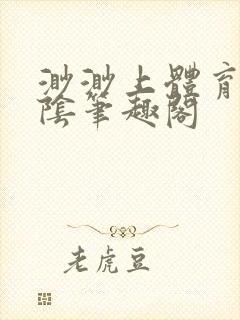 渺渺上體育
陰筆趣閣
老虎豆